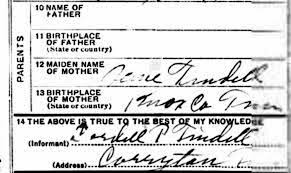 PARENTS
10 NAME OF
FATHER
11 BIRTHPLACE
OF FATHER
(State or country)
12 MAIDEN NAME
OF MOTHER Tindell
13 BIRTHPLACE
OF MOTHER Knox Co Tenn
(State or country)
14 THE ABOVE IS TRUE TO THE BEST OF MY KNOWLEDGE
(Informant) P Tindell
(Address) Corryton